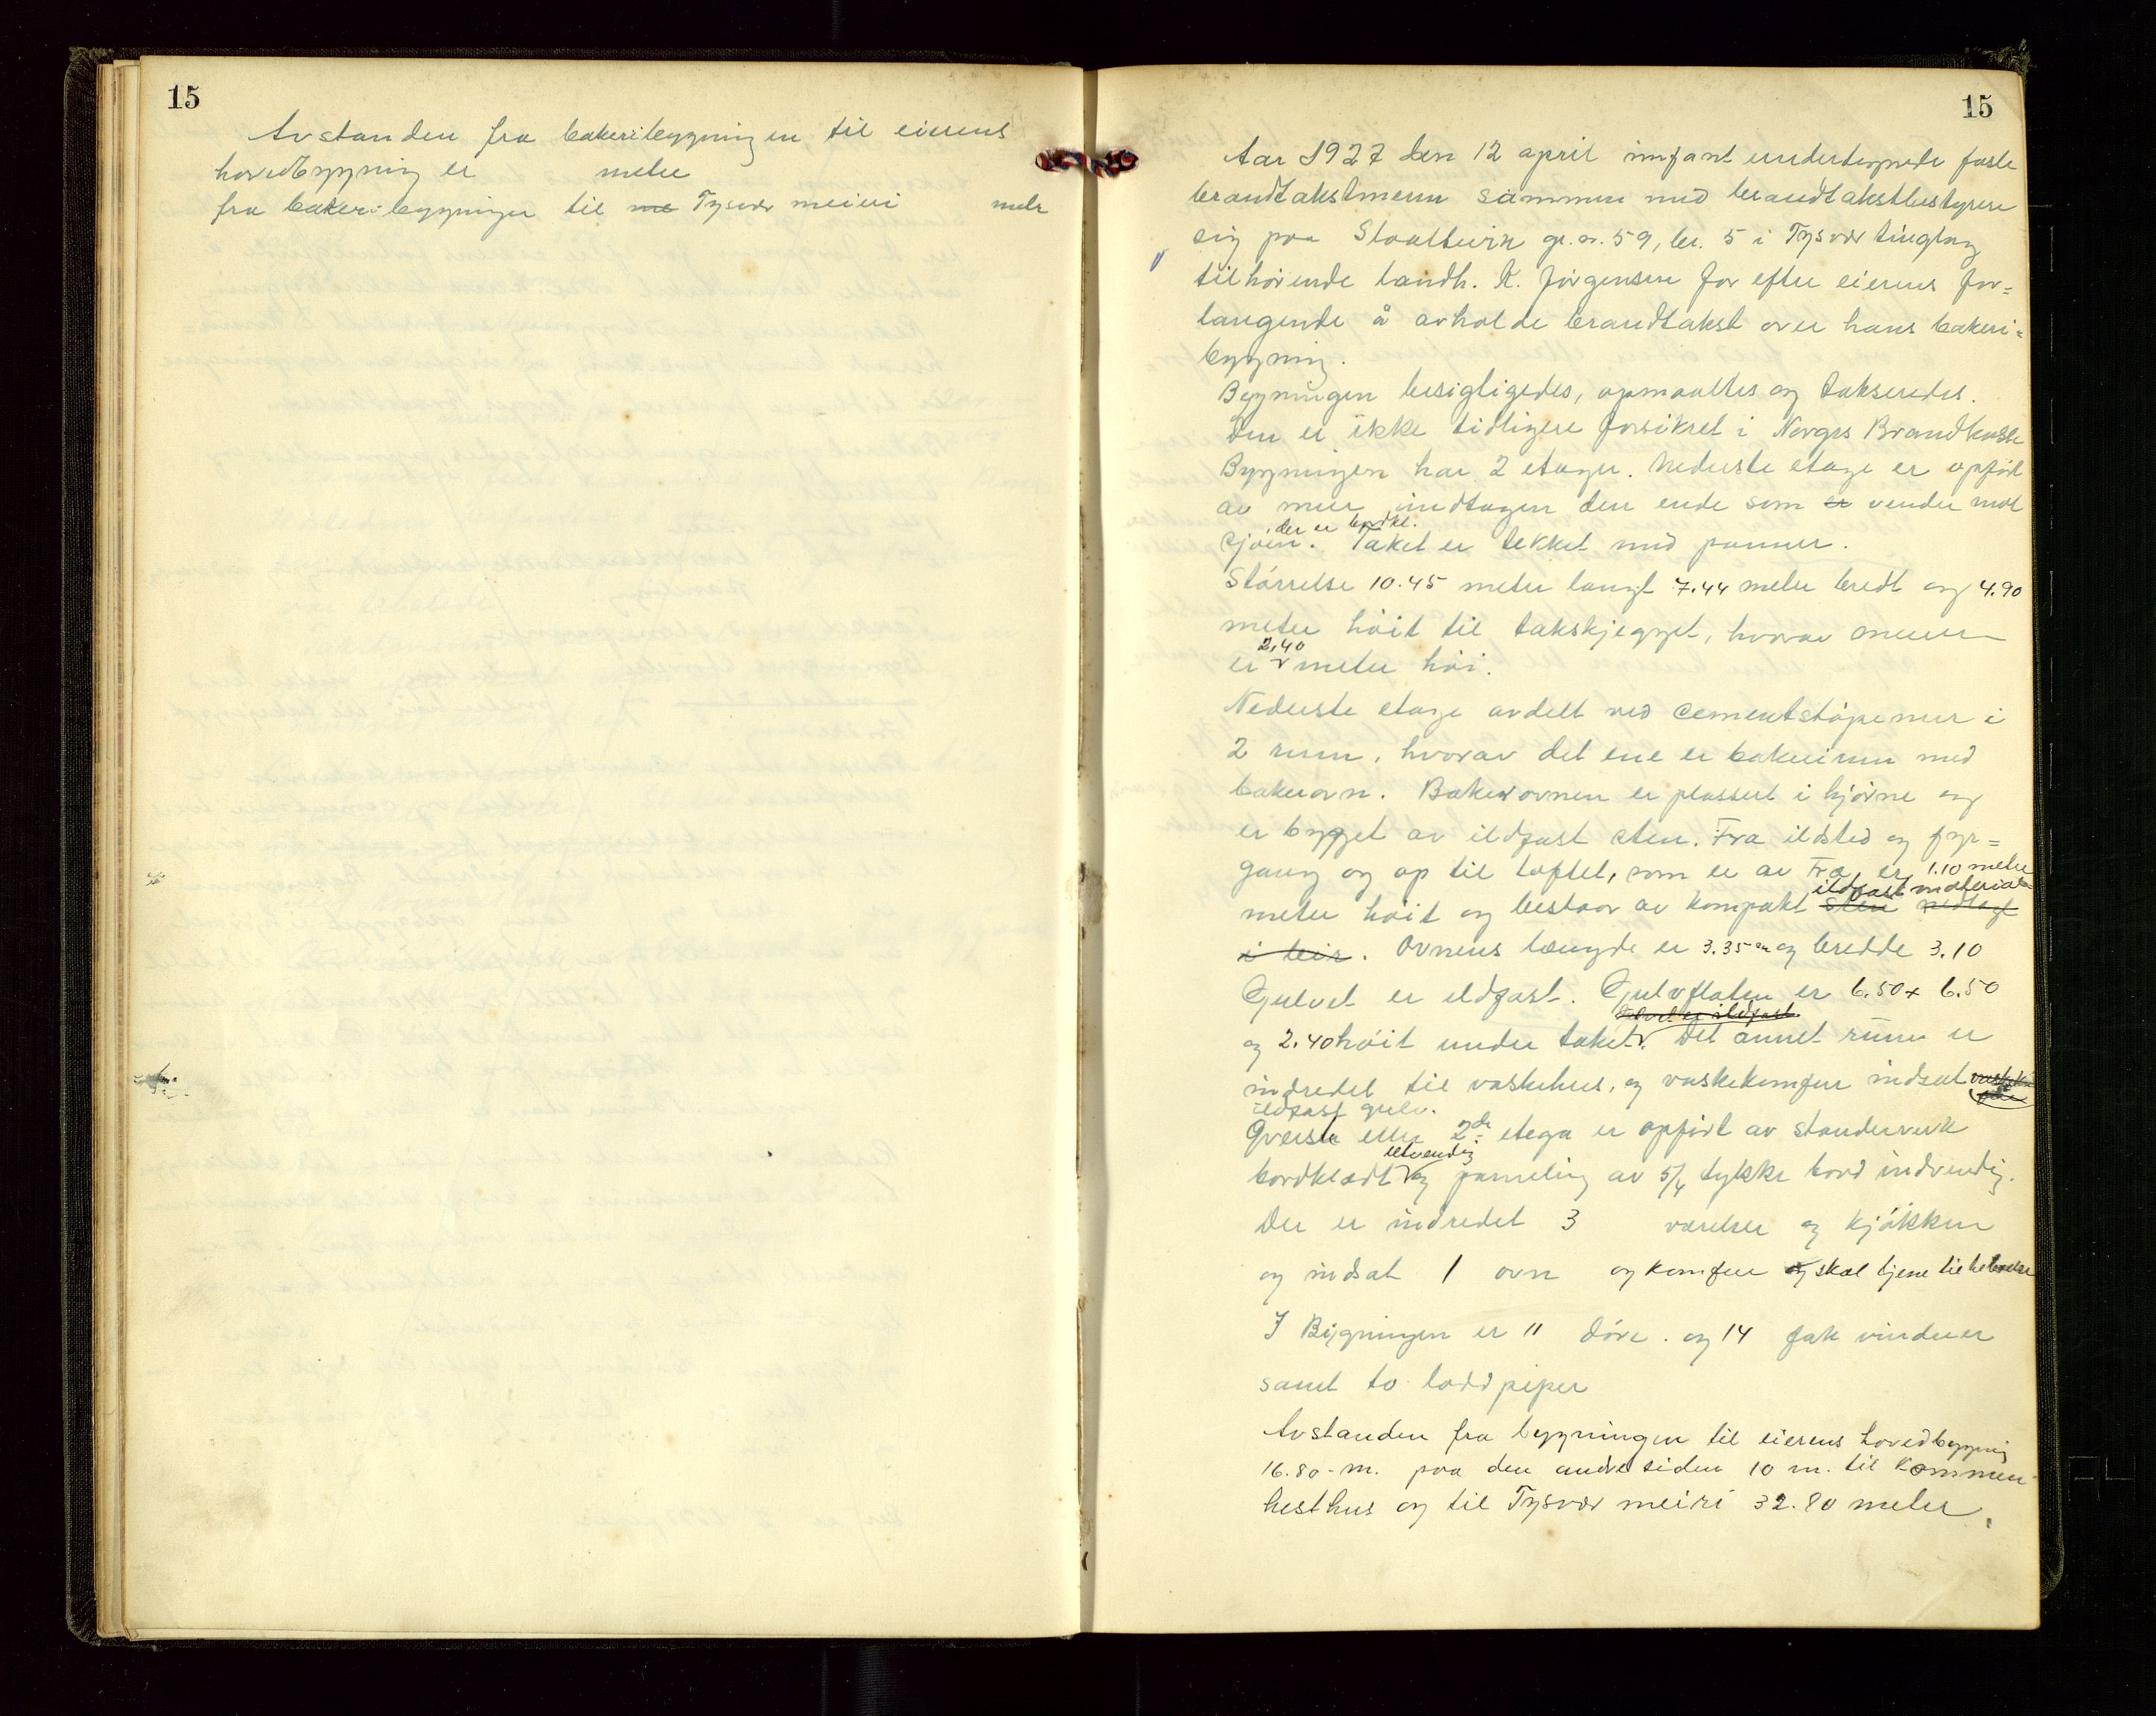 15
Avstanden fra bakeribygningen til eierens
hovedbygning er meter
fra bakeribygningen til me Tysvær meieri metr
15
Aar 1927 den 12 april innfant undertegnede faste
brandtakstmenn sammen med brandtakstbestyrere
sig paa Slaattevik gr.n. 59, br. 5 i Tysvær tinglag
tilhørende landh. K. Jørgensen for efter eierens for=
langende å avholde brandtakst over hans bakeri=
bygning.
Bygningen besigtigedes, opmaaltes og takseredes.
Den er ikke tidligere forsikret i Norges Brandkasse
Bygningen har 2 etager. Nederste etage er opført
av mur undtagen den ende som er vender mot
, der er bordkl.
sjøen. Taket er tekket med panner.
Størrelse 10.45 meter langt 7.44 meter bredt og 4.90
meter høit til takskjegget, hvorav muren
2,40
er meter høi.
Nederste etage avdelt ved cementstøpemur i
2 rum, hvorav det ene er bakerirum med
bakerovn. Bakerovnen er plassert i hjørne og
er bygget av ildfast sten. Fra ildsted og fyr=
gang og op til loftet, som er av Træ, er 1.10 meter
ildfast materiale
meter høit og bestaar av kompakt sten nedlagt
i leir. Ovnens længde er 3.35 m og bredde 3.10
Gulvet er ildfast. Gulvflaten er 6.50 x 6.50
Gulvet er ildfast
og 2.40 høit under taket. Det annet rum er
indredet til vaskehus, og vaskekomfur indsat
ildfast gulv.
Øverste eller 2de etega er opført av standerverk
utvendig
bordklædt og paneling av 5/4 tykke bord indvendig.
Der er indredet 3 værelser og kjøkken
og indsat 1 ovn og komfur og skal tjene til beboelse
I Bygningen er 11 døre. og 14 fak vinduer
samt to loddpiper
Avstanden fra bygningen til eierens hovedbygning
16.80 m. paa den andre siden 10 m. til kommun
hesthus og til Tysvær meiri 32.80 meter.